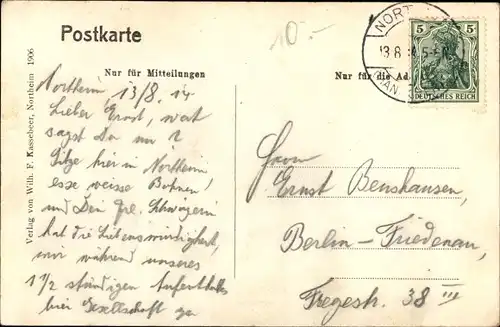 Postkarte
10.-
NORT
13.8.14.5-6N
HAN
5 5
DEUTSCHES REICH
Nur für Mitteilungen
Nur für die Ad
Verlag von Wilh. F. Kassebeer, Northeim 1906
Northeim, 13/8. 14
Lieber Ernst, was
sagst Du nu?
Sitze hier in Northeim
esse weisse Bohnen!
und Dein Frl. Schwägerin
hat die Liebenswürdigkeit,
mir während unseres
1 1/2 stündigen Aufenthaltes
hier Gesellschaft zu
Herrn
Ernst Benshausen,
Berlin-Friedenau,
Fregestr. 38 III